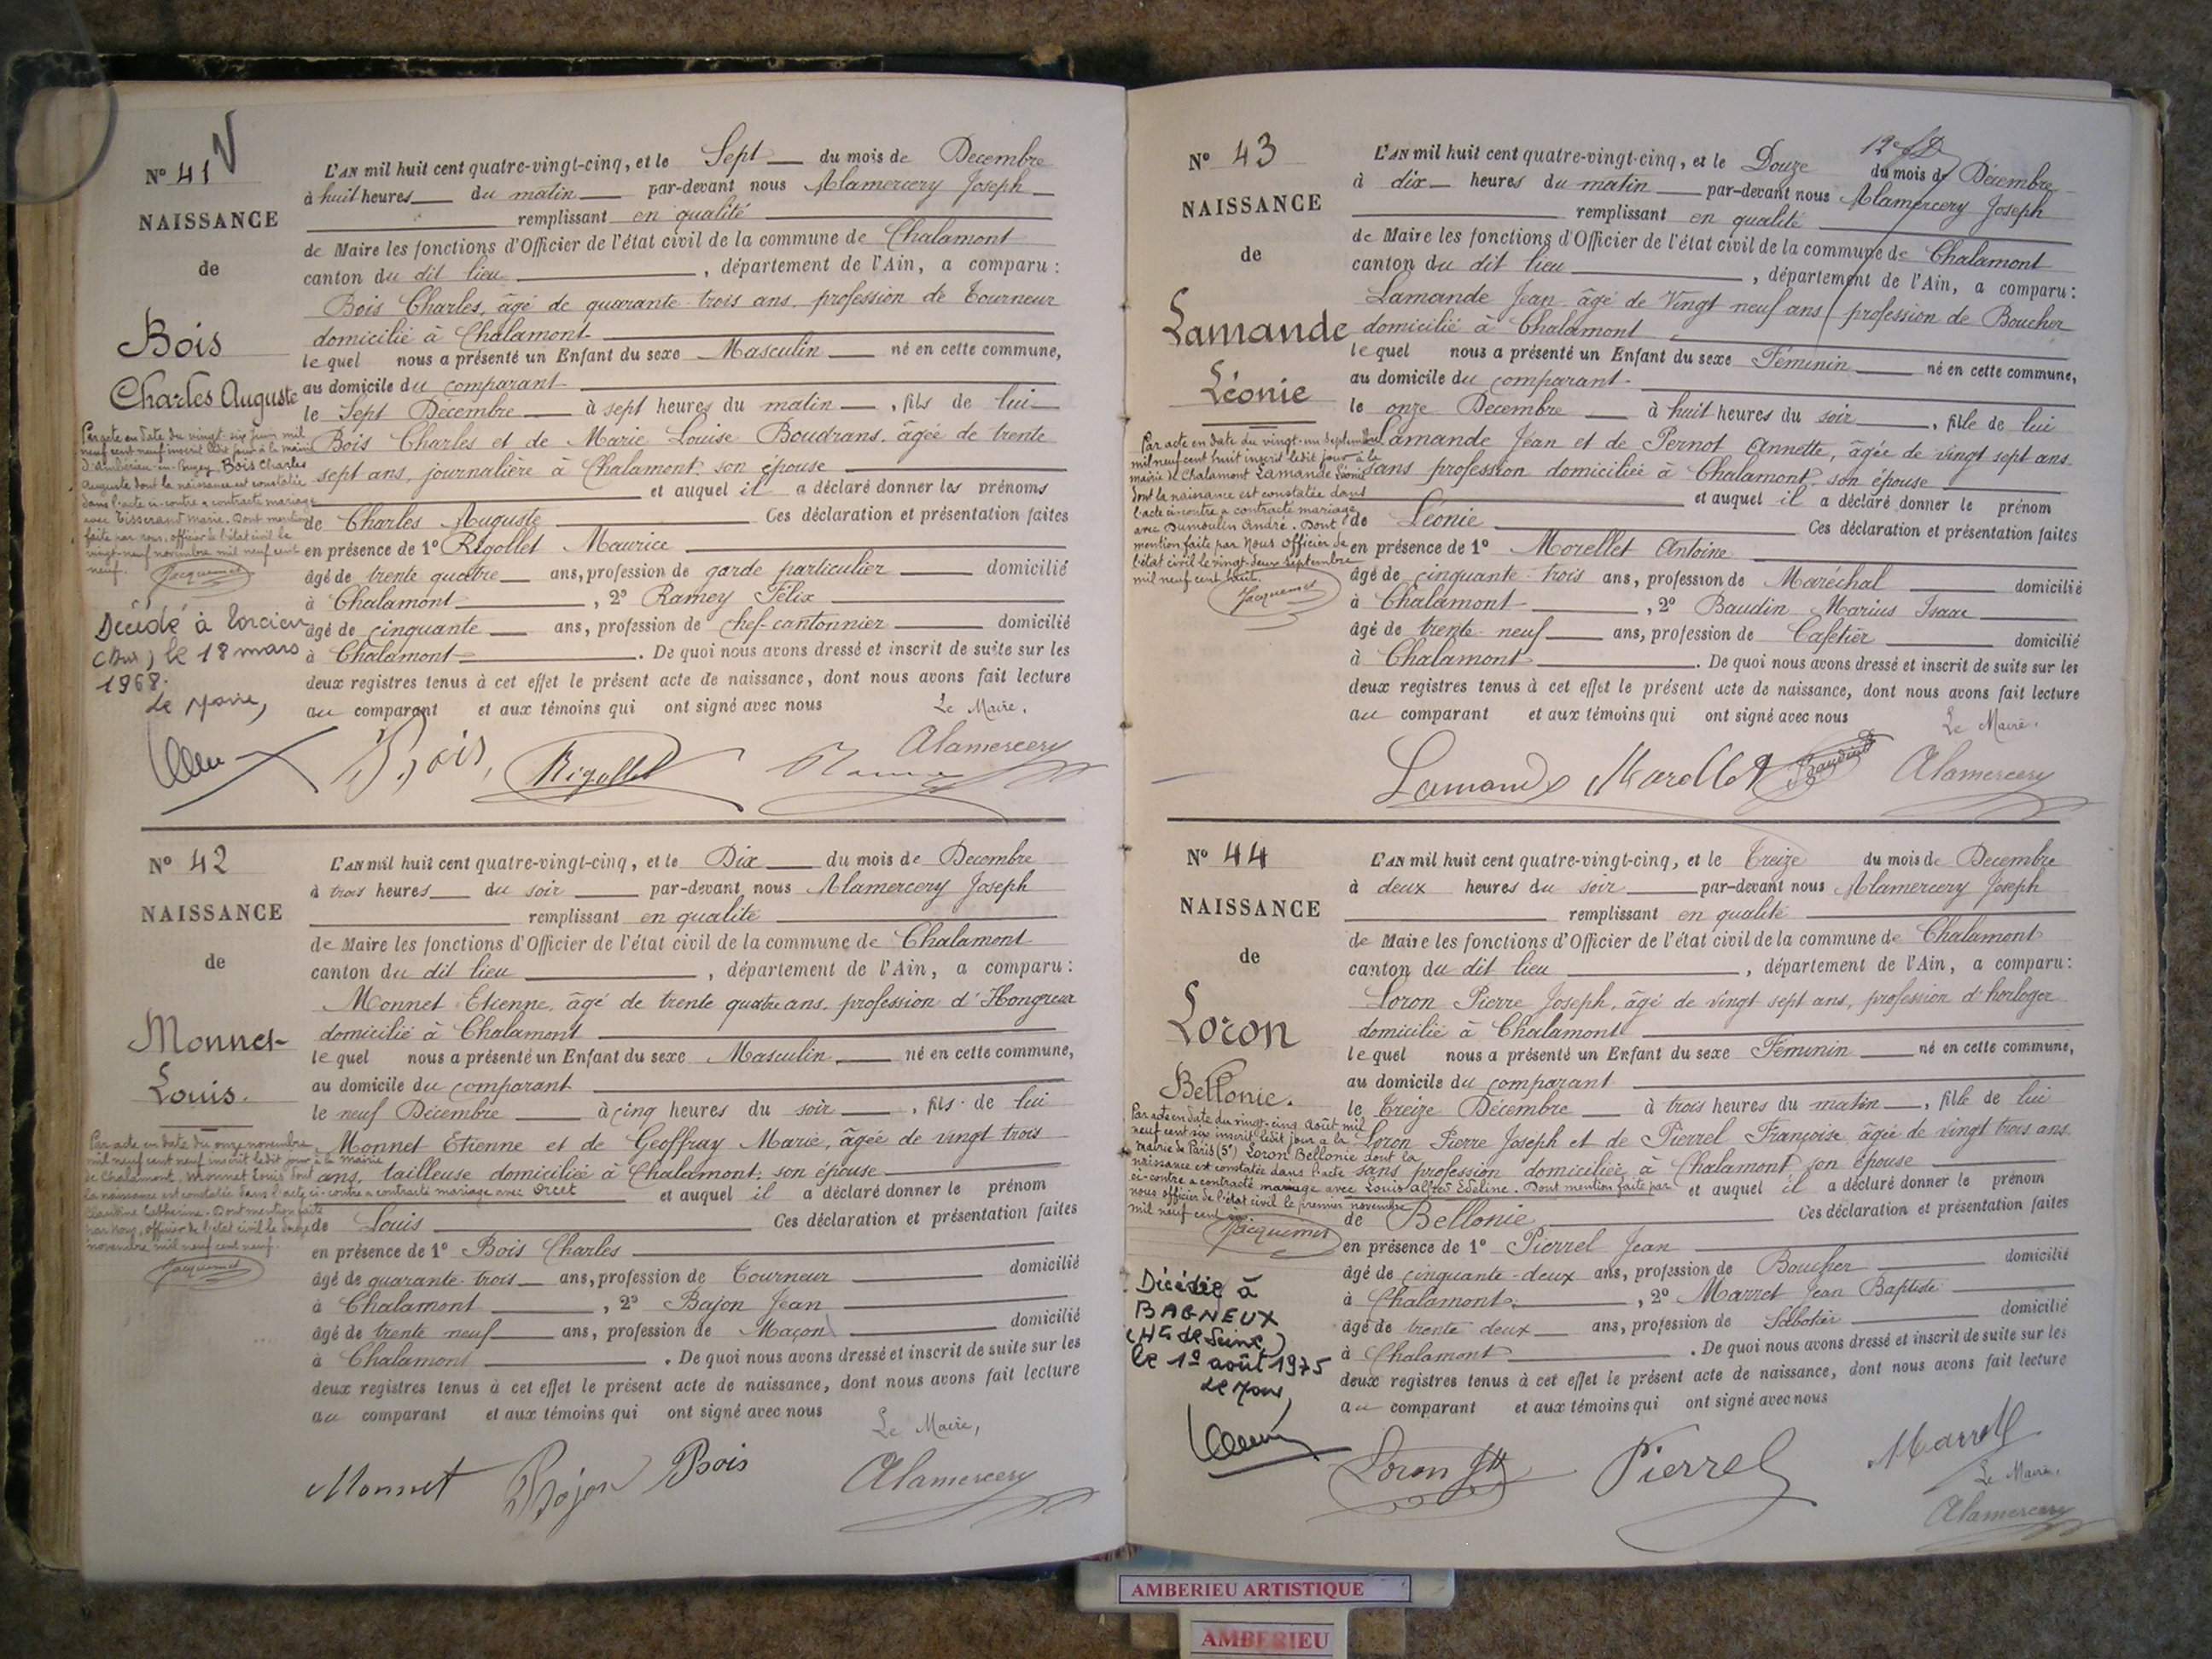 Nº 41
NAISSANCE
de
Bois
Charles Auguste
Par acte en date du vingt-six juin mil
neuf cent neuf inscrit ledit jour à la mairie
d'Ambérieu-en-Bugey Bois Charles
Auguste dont la naissance est constatée
dans l'acte ci-contre a contracté mariage
avec Tisserand Marie. Dont mention
faite par nous, officier de l'état civil le
vingt-neuf novembre mil neuf cent
neuf.
Jacquemet
Décédé à Torcieu
(Ain) le 18 mars
1968.
Le Maire,
L'AN mil huit cent quatre-vingt-cinq, et le Sept du mois de Decembre
à huit heures du matin par-devant nous Alamercery Joseph
remplissant en qualité
de Maire les fonctions d'Officier de l'état civil de la commune de Chalamont
canton du dit lieu , département de l'Ain, a comparu :
Bois Charles, âgé de quarante-trois ans, profession de Tourneur
domicilié à Chalamont
le quel nous a présenté un Enfant du sexe Masculin né en cette commune,
au domicile du comparant
le Sept Décembre à sept heures du matin , fils de lui
Bois Charles et de Marie Louise Boudrans, âgée de trente
sept ans, journalière à Chalamont, son épouse
et auquel il a déclaré donner les prénoms
de Charles Auguste Ces déclaration et présentation faites
en présence de 1º Rigollet Maurice
âgé de trente quatre ans, profession de garde particulier domicilié
à Chalamont , 2º Ramey Félix
âgé de cinquante ans, profession de chef-cantonnier domicilié
à Chalamont . De quoi nous avons dressé et inscrit de suite sur les
deux registres tenus à cet effet le présent acte de naissance, dont nous avons fait lecture
au comparant et aux témoins qui ont signé avec nous
Le Maire,
Bois Rigollet Alamercery
Nº 42
NAISSANCE
de
Monnet
Louis.
Par acte en date du onze novembre
mil neuf cent neuf inscrit ledit jour à la mairie
de Chalamont, Monnet Louis dont
la naissance est constatée dans l'acte ci-contre a contracté mariage avec Orcet
Claudine Catherine. Dont mention faite
par nous, officier de l'état civil le
novembre mil neuf cent neuf.
Jacquemet
L'AN mil huit cent quatre-vingt-cinq, et le Dix du mois de Decembre
à trois heures du soir par-devant nous Alamercery Joseph
remplissant en qualité
de Maire les fonctions d'Officier de l'état civil de la commune de Chalamont
canton du dit lieu , département de l'Ain, a comparu :
Monnet Etienne, âgé de trente quatre ans, profession d'Hongreur
domicilié à Chalamont
le quel nous a présenté un Enfant du sexe Masculin né en cette commune,
au domicile du comparant
le neuf Décembre à cinq heures du soir , fils de lui
Monnet Etienne et de Geoffray Marie, âgée de vingt trois
ans, tailleuse domiciliée à Chalamont, son épouse
et auquel il a déclaré donner le prénom
de Louis Ces déclaration et présentation faites
en présence de 1º Bois Charles
âgé de quarante-trois ans, profession de Tourneur domicilié
à Chalamont , 2º Bajon Jean
âgé de trente neuf ans, profession de Maçon domicilié
à Chalamont . De quoi nous avons dressé et inscrit de suite sur les
deux registres tenus à cet effet le présent acte de naissance, dont nous avons fait lecture
au comparant et aux témoins qui ont signé avec nous
Le Maire,
Monnet Bajon Bois Alamercery
Nº 43
NAISSANCE
de
Lamande
Léonie
Par acte en date du vingt-un Septembre
mil neuf cent huit inscrit ledit jour à la
mairie de Chalamont Lamande Léonie
dont la naissance est constatée dans
l'acte ci-contre a contracté mariage
avec Dumoulin André. Dont
mention faite par Nous officier de
l'état civil le vingt-deux Septembre
mil neuf cent huit.
Jacquemet
L'AN mil huit cent quatre-vingt-cinq, et le Douze du mois de Décembre
à dix heures du matin par-devant nous Alamercery Joseph
remplissant en qualité
de Maire les fonctions d'Officier de l'état civil de la commune de Chalamont
canton du dit lieu , département de l'Ain, a comparu :
Lamande Jean âgé de Vingt neuf ans, profession de Boucher
domicilié à Chalamont
le quel nous a présenté un Enfant du sexe Féminin né en cette commune,
au domicile du comparant
le onze Decembre à huit heures du soir , fille de lui
Lamande Jean et de Pernot Annette, âgée de vingt sept ans
sans profession domiciliée à Chalamont, son épouse
et auquel il a déclaré donner le prénom
de Léonie Ces déclaration et présentation faites
en présence de 1º Morellet Antoine
âgé de cinquante-trois ans, profession de Maréchal domicilié
à Chalamont , 2º Baudin Marius Isaac
âgé de trente-neuf ans, profession de Cafetier domicilié
à Chalamont . De quoi nous avons dressé et inscrit de suite sur les
deux registres tenus à cet effet le présent acte de naissance, dont nous avons fait lecture
au comparant et aux témoins qui ont signé avec nous
Le Maire,
Lamande Morellet Baudin Alamercery
Nº 44
NAISSANCE
de
Loron
Bellonie.
Par acte en date du vingt-cinq Août mil
neuf cent six inscrit ledit jour à la
mairie de Paris (5e) Loron Bellonie dont la
naissance est constatée dans l'acte
ci-contre a contracté mariage avec Louis Alfred Edeline. Dont mention faite par
nous officier de l'état civil le premier novembre
mil neuf cent six.
Jacquemet
Décédée à
BAGNEUX
(Hts de Seine)
le 1º août 1975
Le Maire,
L'AN mil huit cent quatre-vingt-cinq, et le Treize du mois de Decembre
à deux heures du soir par-devant nous Alamercery Joseph
remplissant en qualité
de Maire les fonctions d'Officier de l'état civil de la commune de Chalamont
canton du dit lieu , département de l'Ain, a comparu :
Loron Pierre Joseph, âgé de vingt sept ans, profession d'horloger
domicilié à Chalamont
le quel nous a présenté un Enfant du sexe Féminin né en cette commune,
au domicile du comparant
le Treize Décembre à trois heures du matin , fille de lui
Loron Pierre Joseph et de Pierrel Françoise âgée de vingt trois ans
sans profession domiciliée à Chalamont son épouse
et auquel il a déclaré donner le prénom
de Bellonie Ces déclaration et présentation faites
en présence de 1º Pierrel Jean
âgé de cinquante-deux ans, profession de Boucher domicilié
à Chalamont , 2º Marret Jean Baptiste
âgé de trente deux ans, profession de Sabotier domicilié
à Chalamont . De quoi nous avons dressé et inscrit de suite sur les
deux registres tenus à cet effet le présent acte de naissance, dont nous avons fait lecture
au comparant et aux témoins qui ont signé avec nous
Loron Pierrel Marret
Le Maire,
Alamercery
AMBERIEU ARTISTIQUE
AMBERIEU